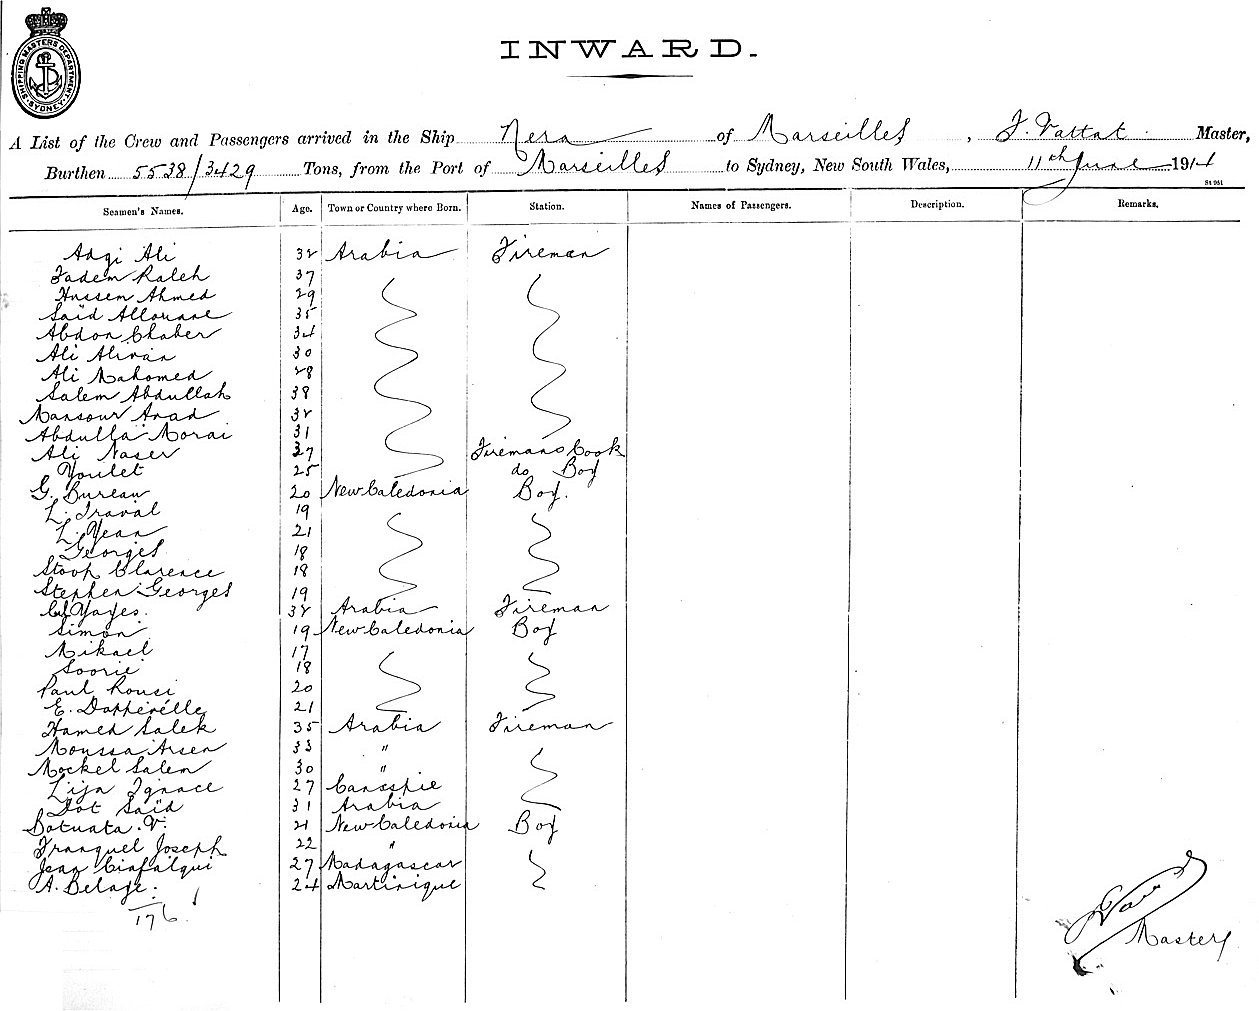 SHIPPING MASTERS DEPARTMENT SYDNEY
INWARD.
A List of the Crew and Passengers arrived in the Ship Nera of Marseilles, J. Vattat Master,
Burthen 5538/3429 Tons, from the Port of Marseilles to Sydney, New South Wales, 11th June 1914
St 951
Seamen's Names. Age. Town or Country where Born. Station. Names of Passengers. Description. Remarks.
Adgi Ali 32 Arabia Fireman
Fadem Raleh 37
Hussem Ahmed 29
Saïd Allouane 35
Abdon Chaher 34
Ali Aliván 30
Ali Mahomed 28
Salem Abdullah 38
Mansour Anad 32
Abdulla Morai 31
Ali Naser 37 Firemans Cook
Youlet 25 do Boy
G. Bureau 20 New Caledonia Boy.
L. Iraval 19
L. Yean 21
Georges 18
Stook Clarence 18
Stephen Georges 19
Yayes. 32 Arabia Fireman
Simon 19 New Caledonia Boy
Mikael 17
Soorie 18
Paul Rousi 20
E. Dapperélle 21
Hamed Salek 35 Arabia Fireman
Moussa Arsen 33 "
Mockel Salem 30 "
Lija Ignace 27 Cansspie
Dot Saïd 31 Arabia
Botuata. V. 21 New Caledonia Boy
Franquel Joseph 22 "
Jean Ciafalqui 27 Madagascar
A. Belage. 24 Martinique
176
Master